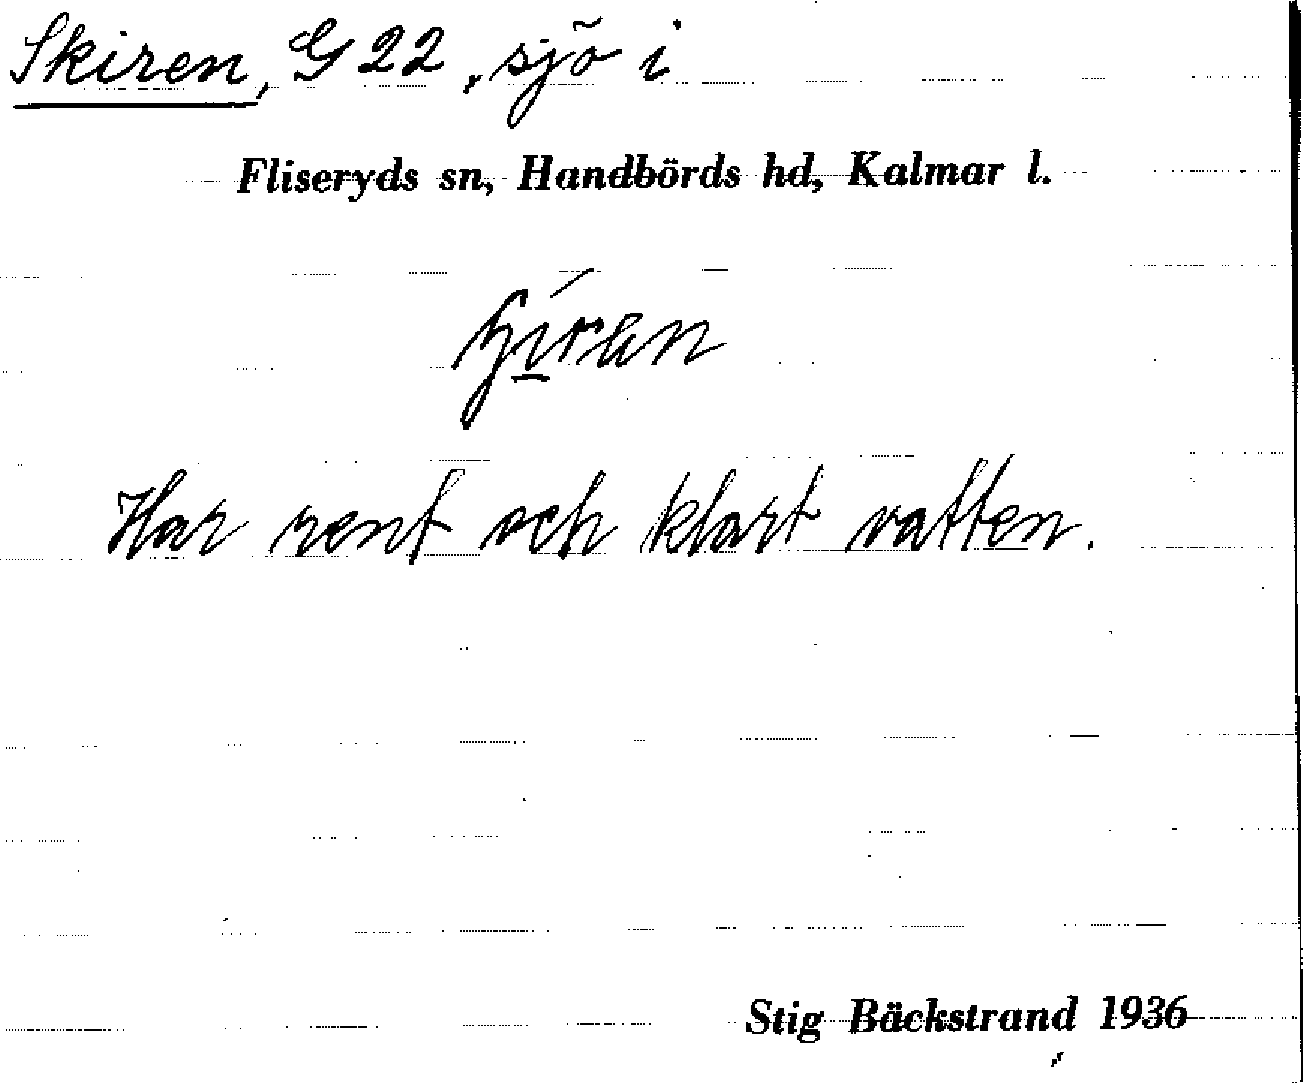 Skiren, G 22, sjö i
Fliseryds sn, Handbörds hd, Kalmar l.
Har rent och klart vatten.
Stig Bäckstrand 1936